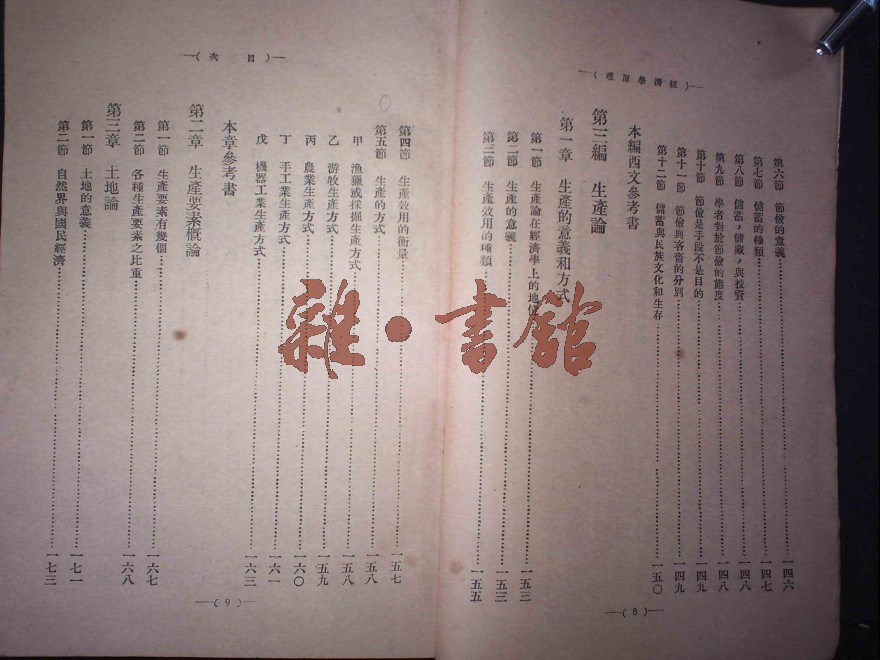 —(經濟學原理)—
第六節 節儉的意義 一四六
第七節 儲蓄的種類 一四七
第八節 儲蓄，儲藏，與投資 一四八
第九節 學者對於節儉的態度 一四八
第十節 節儉是手段不是目的 一四九
第十一節 節儉與吝嗇的分別 一四九
第十二節 儲蓄與民族文化和生存 一五〇
本編西文參考書
第三編 生產論
第一章 生產的意義和方式
第一節 生產論在經濟學上的地位 一五三
第二節 生產的意義 一五三
第三節 生產效用的種類 一五五
—(8)—
—(目次)—
第四節 生產效用的衡量 一五七
第五節 生產的方式 一五八
甲 漁獵或採掘生產方式 一五八
乙 游牧生產方式 一五九
丙 農業生產方式 一六〇
丁 手工業生產方式 一六一
戊 機器工業生產方式 一六三
本章參考書
第二章 生產要素概論
第一節 生產要素有幾個 一六七
第二節 各種生產要素之比重 一六八
第三章 土地論
第一節 土地的意義 一七一
第二節 自然界與國民經濟 一七三
—(9)—
雜·書館